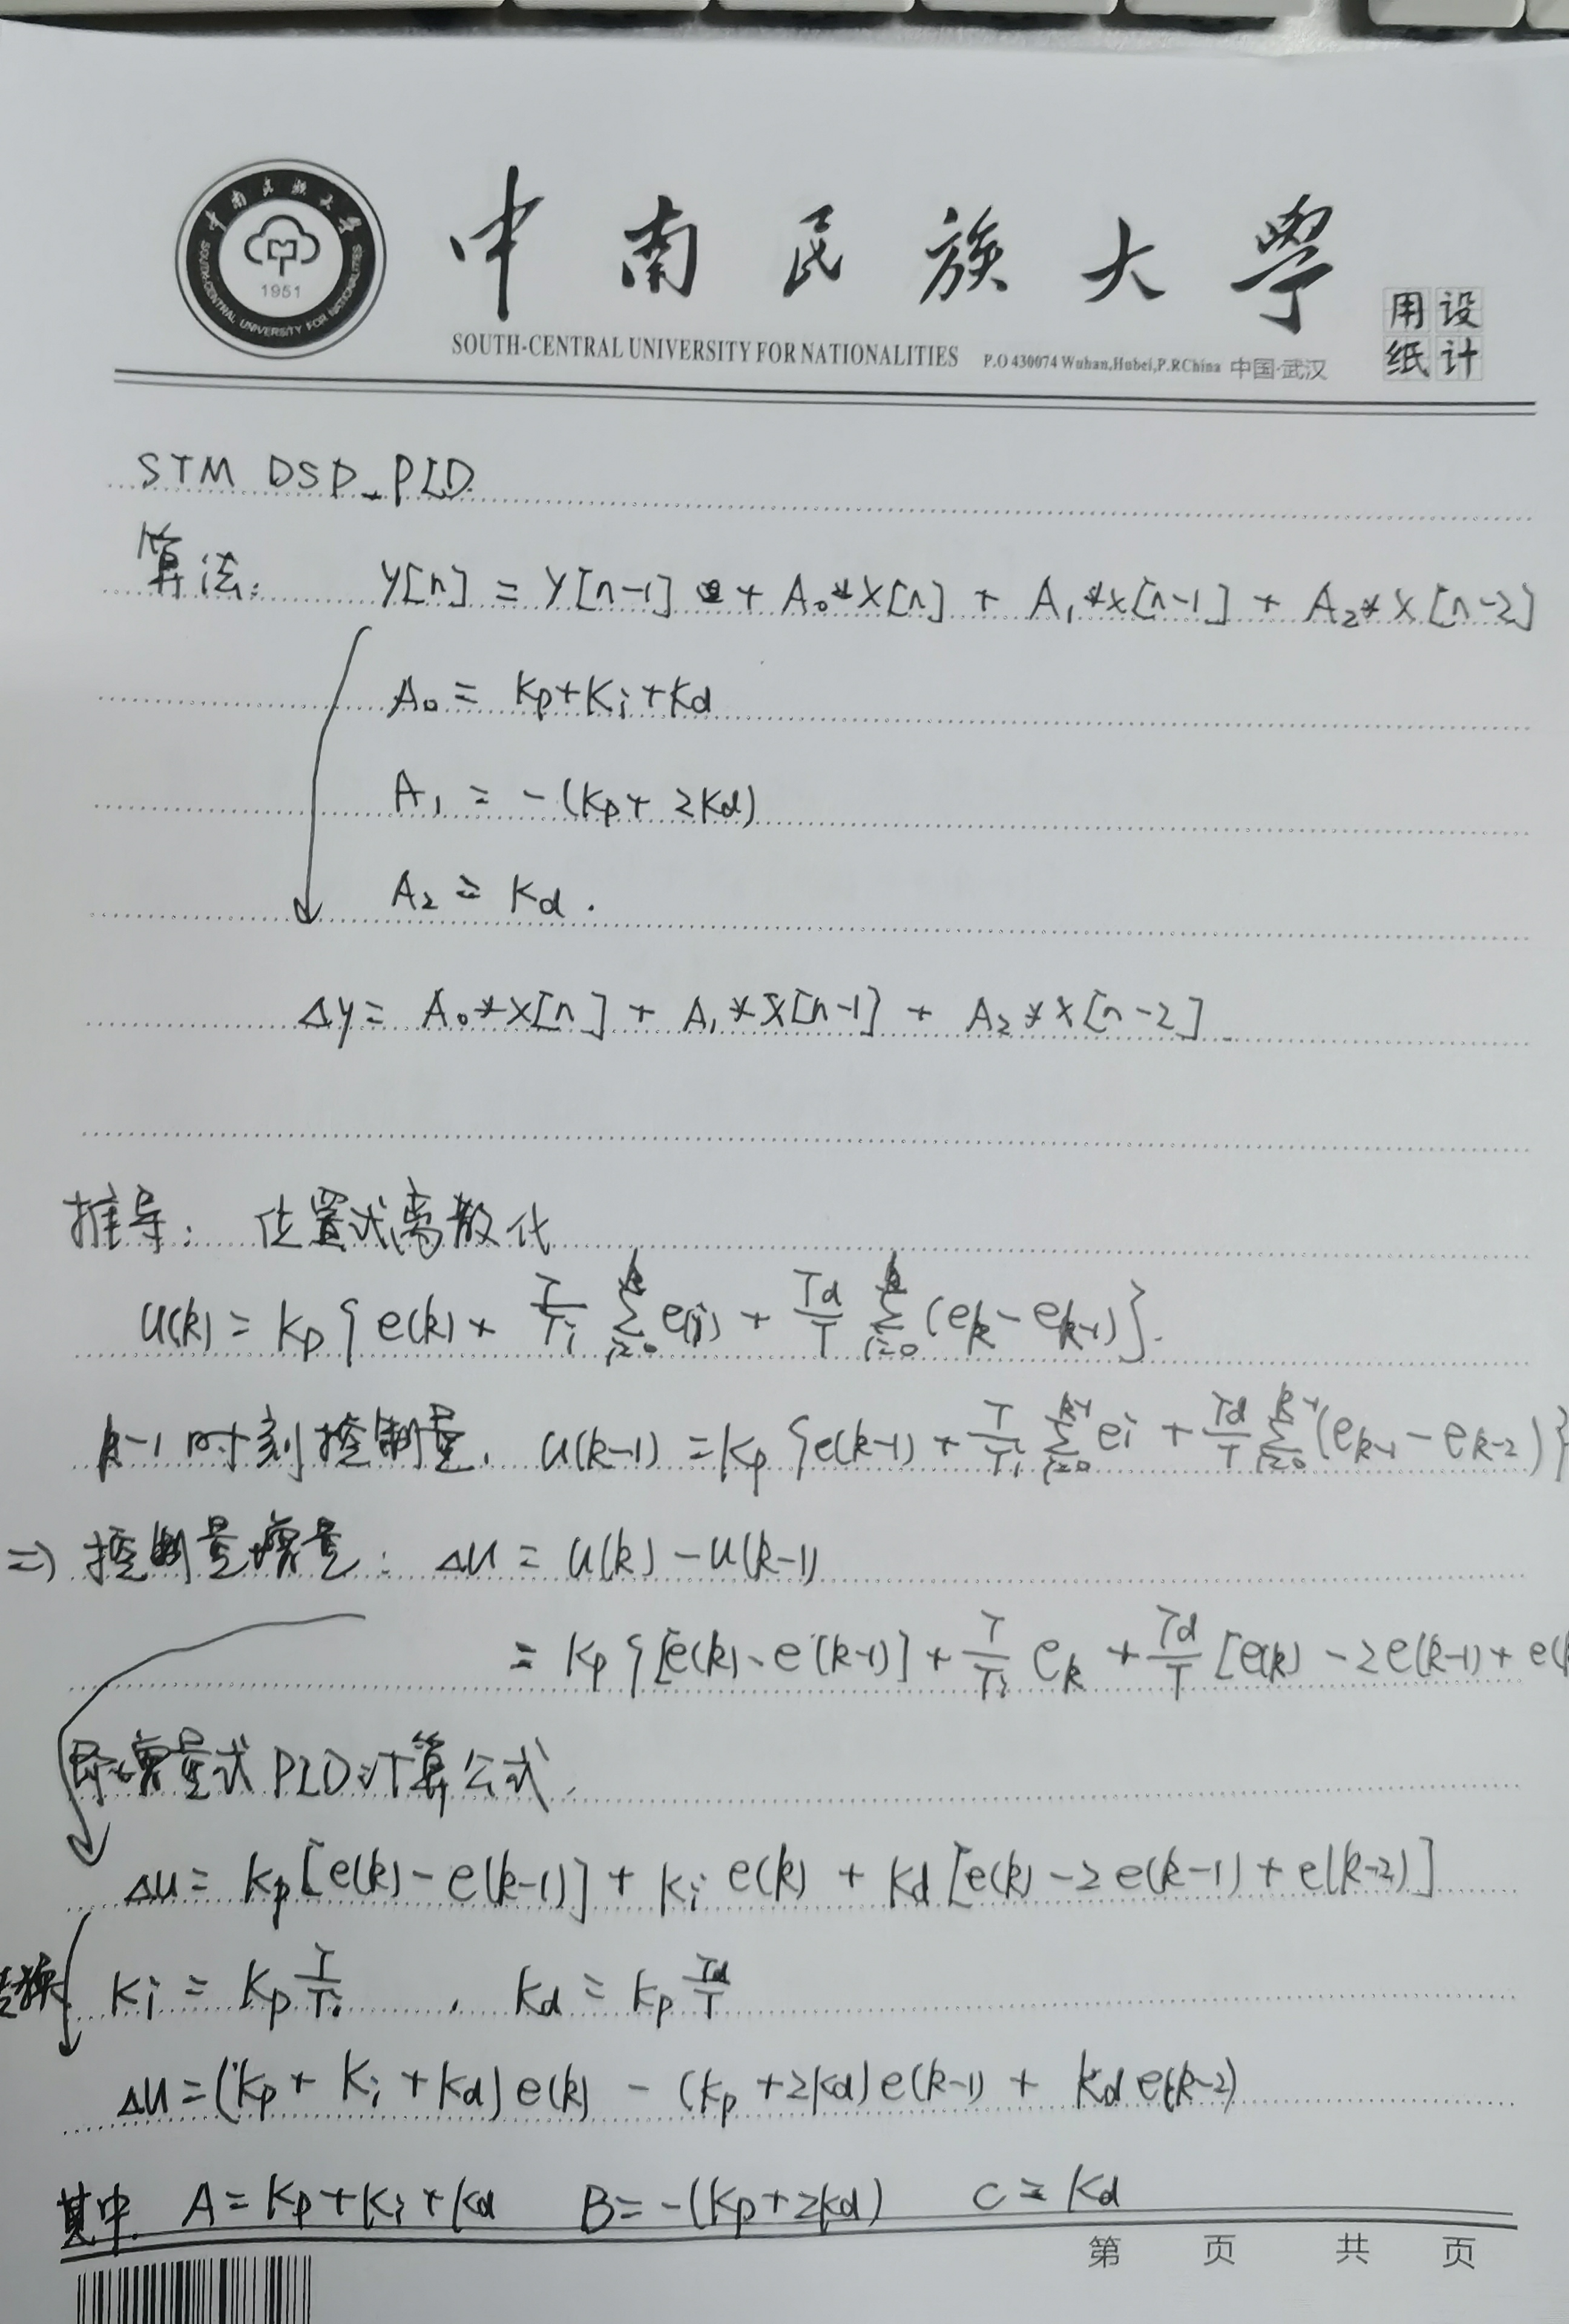 中南民族大学
SOUTH-CENTRAL UNIVERSITY FOR NATIONALITIES
1951
中南民族大學
SOUTH-CENTRAL UNIVERSITY FOR NATIONALITIES P.O 430074 Wuhan,Hubei,P.RChina 中国·武汉
设计用纸
STM DSP_PID
算法: y[n] = y[n-1] + A₀*x[n] + A₁*x[n-1] + A₂*x[n-2]
A₀ = Kp+Ki+Kd
A₁ = -(Kp+2Kd)
A₂ = Kd.
Δy = A₀*x[n] + A₁*x[n-1] + A₂*x[n-2]
推导: 位置式离散化
u(k) = Kp{e(k) + T/Ti Σ(i=0→k) e(i) + Td/T Σ(i=0→k) (ek - ek-1)}.
k-1时刻控制量, u(k-1) = Kp{e(k-1) + T/Ti Σ(i=0→k-1) ei + Td/T Σ(i=0→k-1) (ek-1 - ek-2)}
=> 控制量增量: Δu = u(k) - u(k-1)
= Kp{[e(k) - e(k-1)] + T/Ti ek + Td/T [e(k) - 2e(k-1) + e(k
即增量式PID计算公式,
Δu = Kp[e(k) - e(k-1)] + Ki e(k) + Kd[e(k) - 2e(k-1) + e(k-2)]
换 Ki = Kp T/Ti , Kd = Kp Td/T
Δu = (Kp + Ki + Kd)e(k) - (Kp + 2Kd)e(k-1) + Kd e(k-2)
其中. A = Kp+Ki+Kd B = -(Kp+2Kd) C = Kd
第 页 共 页